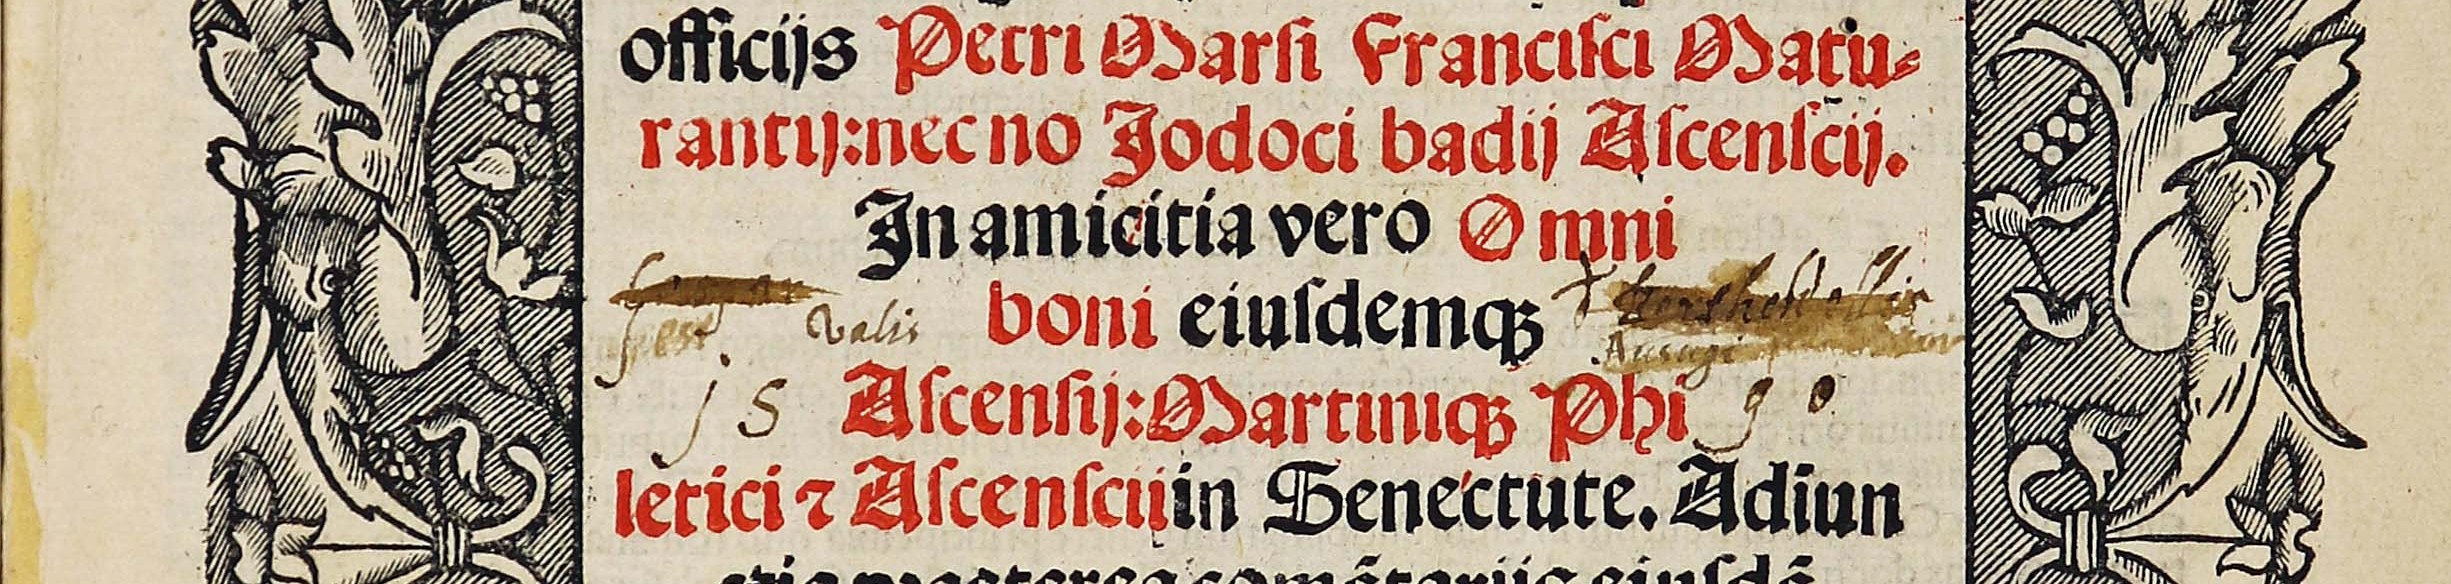 officijs Petri Marsi Francisci Matu⸗
rantij: necnō Jodoci badij Ascenscij.
In amicitia vero Omni
boni eiusdemqꝫ
valis
j S Ascensij: Martiniqꝫ Phi 9 0
letici ⁊ Ascenscii in Senectute. Adiun